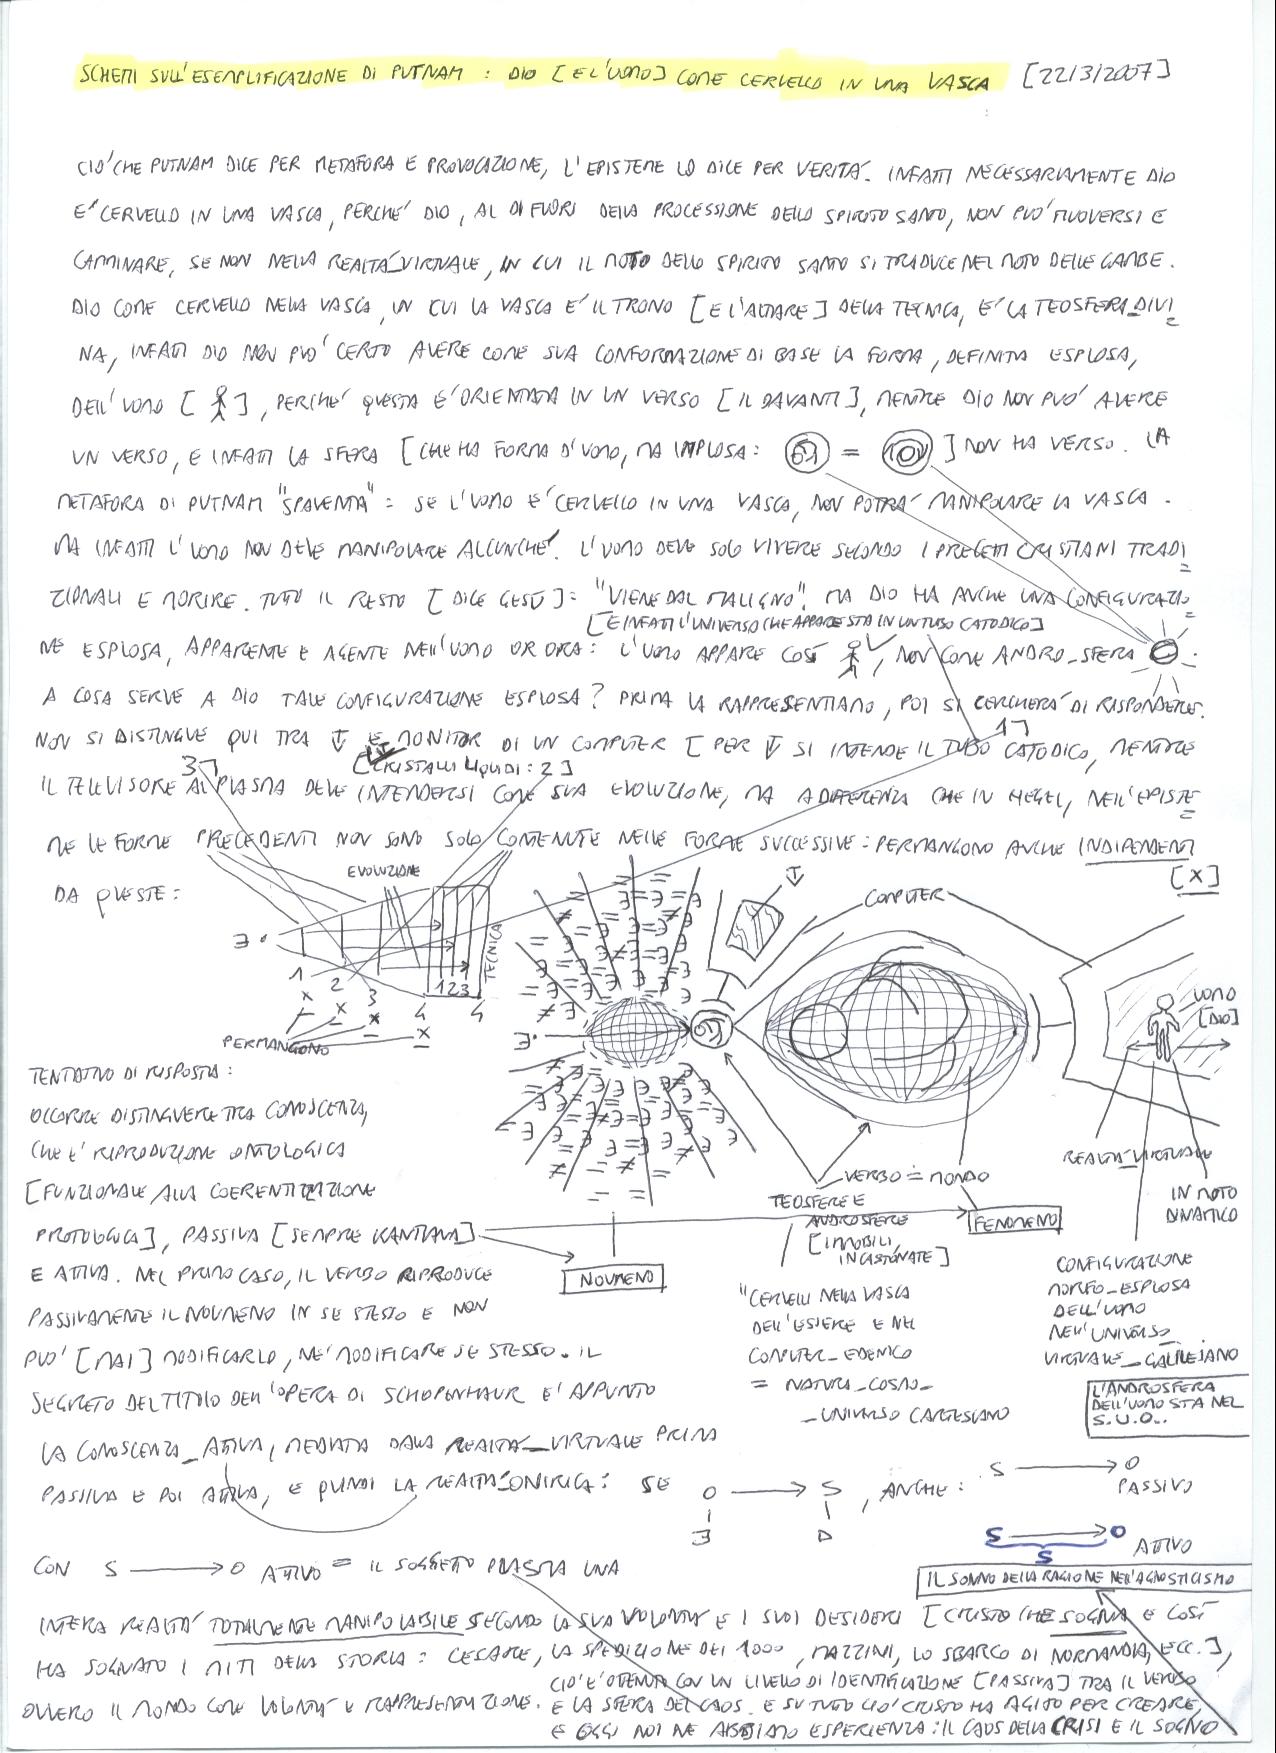 SCHEMI SULL'ESEMPLIFICAZIONE DI PUTNAM : DIO [E L'UOMO] COME CERVELLO IN UNA VASCA [22/3/2007]
CIO' CHE PUTNAM DICE PER METAFORA E PROVOCAZIONE, L'EPISTEME LO DICE PER VERITA'. INFATTI NECESSARIAMENTE DIO
E' CERVELLO IN UNA VASCA, PERCHE' DIO, AL DI FUORI DELLA PROCESSIONE DELLO SPIRITO SANTO, NON PUO' MUOVERSI E
CAMMINARE, SE NON NELLA REALTA'_VIRTUALE, IN CUI IL MOTO DELLO SPIRITO SANTO SI TRADUCE NEL MOTO DELLE GAMBE.
DIO COME CERVELLO NELLA VASCA, IN CUI LA VASCA E' IL TRONO [E L'ALTARE] DELLA TECNICA, E' LA TEOSFERA_DIVI=
NA, INFATTI DIO NON PUO' CERTO AVERE COME SUA CONFORMAZIONE DI BASE LA FORMA, DEFINITA ESPLOSA,
DELL'UOMO [ ], PERCHE' QUESTA E' ORIENTATA IN UN VERSO [IL DAVANTI], MENTRE DIO NON PUO' AVERE
UN VERSO, E INFATTI LA SFERA [CHE HA FORMA D'UOMO, MA IMPLOSA: = ] NON HA VERSO. LA
METAFORA DI PUTNAM "SPAVENTA" : SE L'UOMO E' CERVELLO IN UNA VASCA, NON POTRA' MANIPOLARE LA VASCA.
MA INFATTI L'UOMO NON DEVE MANIPOLARE ALCUNCHE'. L'UOMO DEVE SOLO VIVERE SECONDO I PRECETTI CRISTIANI TRADI=
ZIONALI E MORIRE. TUTTO IL RESTO [DICE GESU'] : "VIENE DAL MALIGNO". MA DIO HA ANCHE UNA CONFIGURAZIO=
[E INFATTI L'UNIVERSO CHE APPARE STA IN UN TUBO CATODICO]
NE ESPLOSA, APPARENTE E AGENTE NELL'UOMO OR ORA: L'UOMO APPARE COSI' , NON COME ANDRO_SFERA
A COSA SERVE A DIO TALE CONFIGURAZIONE ESPLOSA? PRIMA LA RAPPRESENTIAMO, POI SI CERCHERA' DI RISPONDERE.
NON SI DISTINGUE QUI TRA TV E MONITOR DI UN COMPUTER [PER TV SI INTENDE IL TUBO CATODICO, MENTRE
1]
3] [CRISTALLI LIQUIDI : 2]
IL TELEVISORE AL PLASMA DEVE INTENDERSI COME SUA EVOLUZIONE, MA A DIFFERENZA CHE IN HEGEL, NELL'EPISTE=
ME LE FORME PRECEDENTI NON SONO SOLO CONTENUTE NELLE FORME SUCCESSIVE : PERMANGONO ANCHE INDIPENDENTI
[X]
DA QUESTE :
EVOLUZIONE
TECNICA
1 2 3 4
PERMANGONO
TV
COMPUTER
UOMO
[DIO]
TENTATIVO DI RISPOSTA :
OCCORRE DISTINGUERE TRA CONOSCENZA,
CHE E' RIPRODUZIONE ONTOLOGICA
[FUNZIONALE ALLA COERENTIZZAZIONE
PROTOLOGICA], PASSIVA [SEMPRE KANTIANA]
E ATTIVA. NEL PRIMO CASO, IL VERBO RIPRODUCE
PASSIVAMENTE IL NOUMENO IN SE STESSO E NON
PUO' [MAI] MODIFICARLO, NE' MODIFICARE SE STESSO. IL
SEGRETO DEL TITOLO DELL'OPERA DI SCHOPENHAUR E' APPUNTO
LA CONOSCENZA_ATTIVA, MEDIATA DALLA REALTA'_VIRTUALE PRIMA
PASSIVA E POI ATTIVA, E QUINDI LA REALTA'_ONIRICA : SE
NOUMENO
VERBO = MONDO
FENOMENO
TEOSFERE E
ANDROSFERE
[IMMOBILI,
INCASTONATE]
"CERVELLI NELLA VASCA
DELL'ESSERE E NEL
COMPUTER_EDENICO
= NATURA_COSMO_
_UNIVERSO CARTESIANO
REALTA'_VIRTUALE
IN MOTO
DINAMICO
CONFIGURAZIONE
MORFO_ESPLOSA
DELL'UOMO
NELL'UNIVERSO_
VIRTUALE_GALILEIANO
L'ANDROSFERA
DELL'UOMO STA NEL
S.U.O..
O → S , ANCHE : S → O
PASSIVO
∃ D
S → O
S
ATTIVO
IL SONNO DELLA RAGIONE NELL'AGNOSTICISMO
CON S → O ATTIVO = IL SOGGETTO PLASMA UNA
INTERA REALTA' TOTALMENTE MANIPOLABILE SECONDO LA SUA VOLONTA' E I SUOI DESIDERI [CRISTO CHE SOGNA E COSI'
HA SOGNATO I MITI DELLA STORIA : CESARE, LA SPEDIZIONE DEI 1000, MAZZINI, LO SBARCO DI NORMANDIA, ECC.],
OVVERO IL MONDO COME VOLONTA' E RAPPRESENTAZIONE.
CIO' E' OTTENUTO CON UN LIVELLO DI IDENTIFICAZIONE [PASSIVA] TRA IL VERBO
E LA SFERA DEL CAOS. E SU TUTTO CIO' CRISTO HA AGITO PER CREARE,
E OGGI NOI NE ABBIAMO ESPERIENZA : IL CAOS DELLA CRISI E IL SOGNO